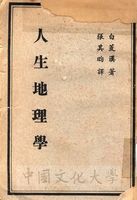 白菱漢著
張其昀譯
人生地理學
中國文化大學